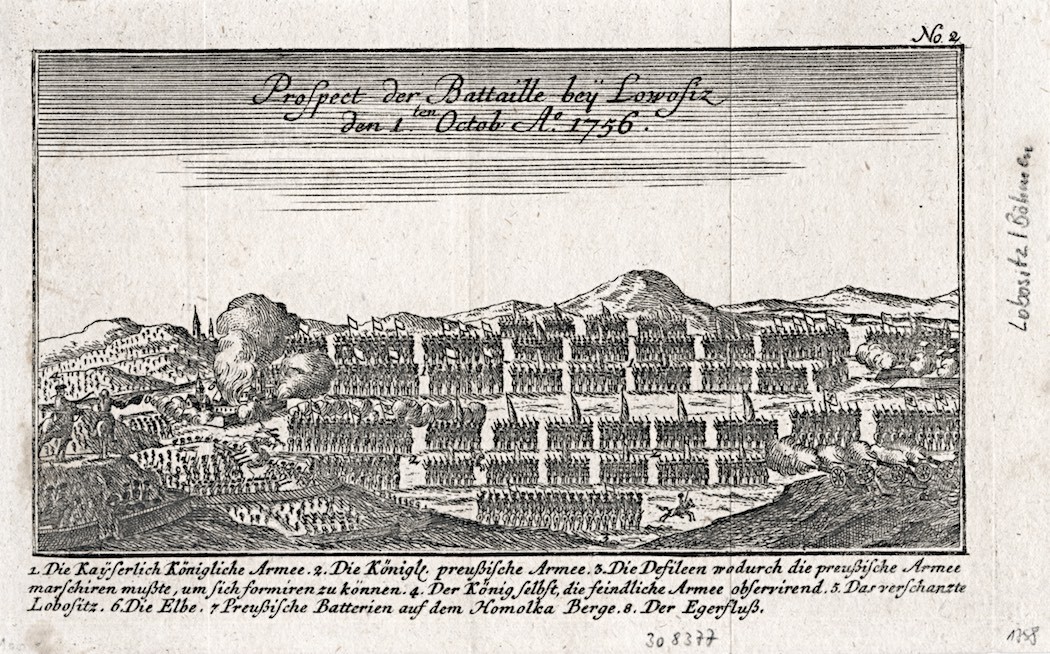 No. 2
Prospect der Battaille beÿ Lowosiz
den 1.ten Octob A.o 1756.
1. Die Kaÿserlich Königliche Armee. 2. Die Königl. preußische Armee. 3. Die Defileen wodurch die preußische Armee
marschiren mußte, um sich formiren zu können. 4. Der König selbst, die feindliche Armee observirend. 5. Das verschanzte
Lobositz. 6. Die Elbe. 7 Preußische Batterien auf dem Homolka Berge. 8. Der Egerfluß.
Lobositz / Böhmen
308377
1758